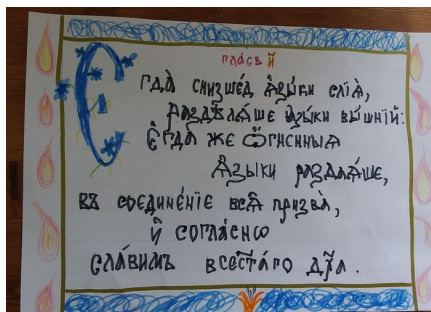 гла́съ и҃
Є҆гда̀ снизше́д ѧ҆зы́ки слїѧ̀,
раздѣлѧ́ше ѧ҆зы́ки вы́шнїй:
є҆гда̀ же ѻ҆́гненныѧ
ѧ҆зы́ки раздаѧ́ше,
въ соедине́нїе всѧ̑ призва̀,
и҆ согла́снѡ
сла́вимъ всест҃а́го дх҃а.